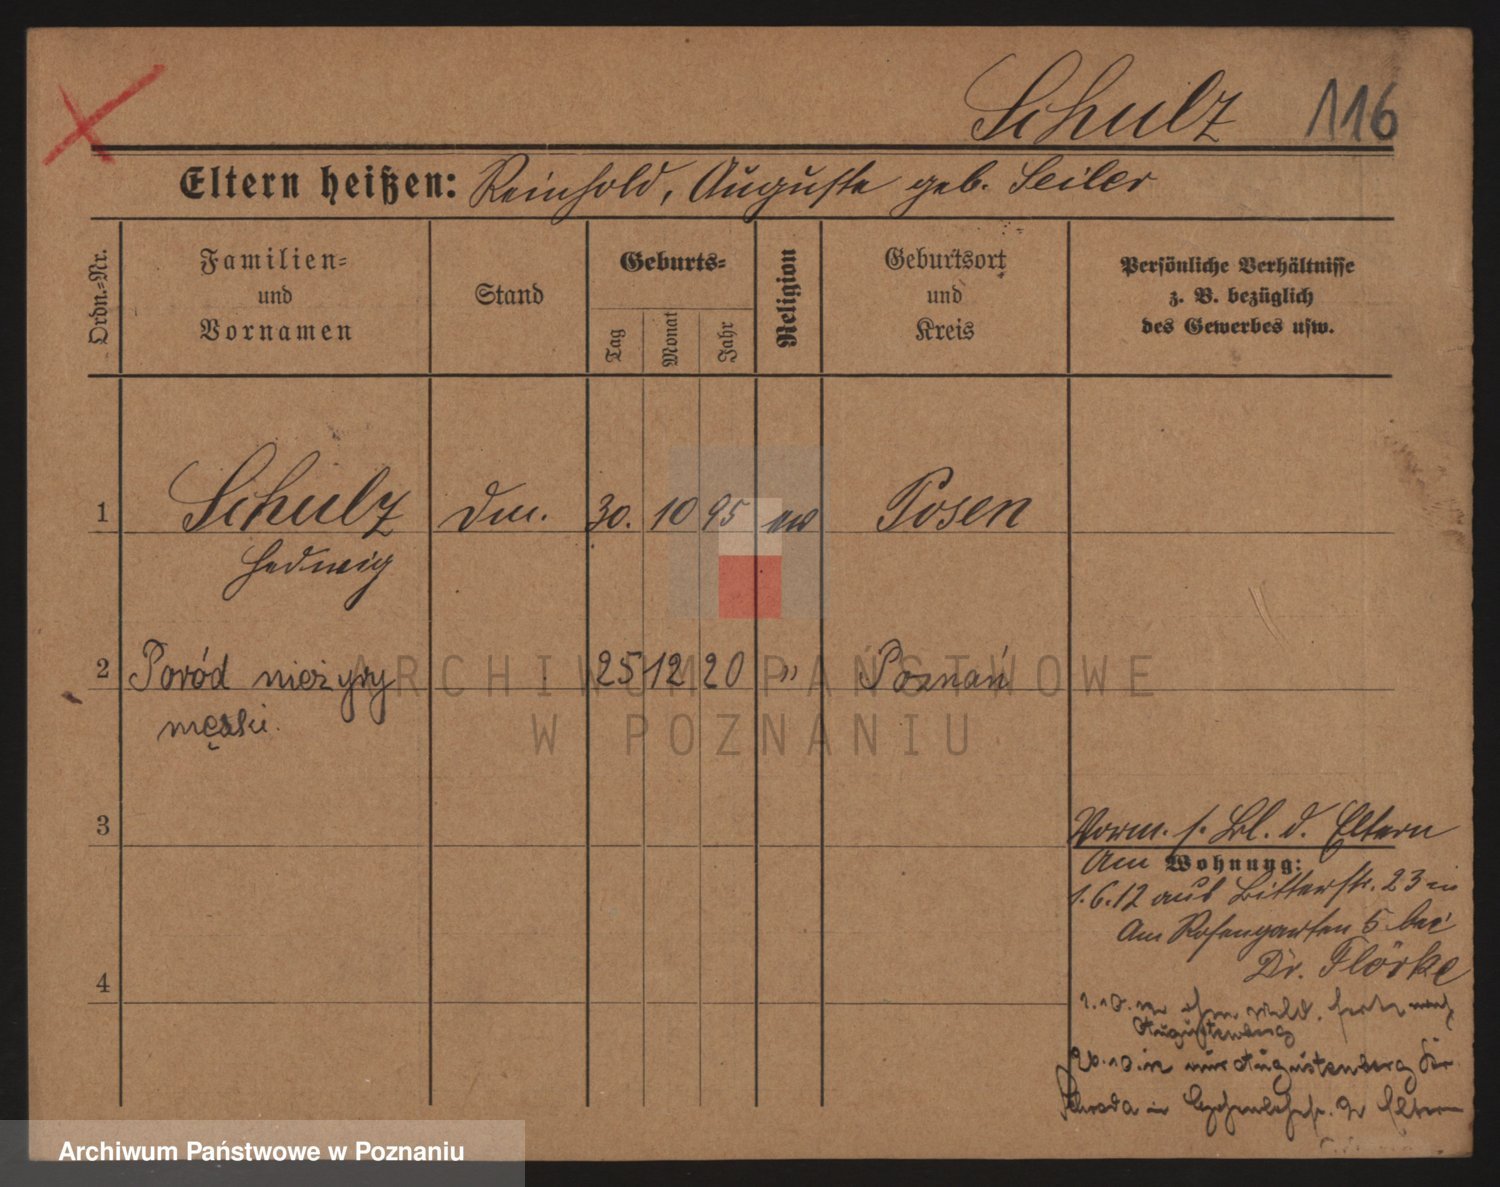 Schulz 116
Eltern heißen: Reinhold, Auguste geb. Seiler
Ordn.-Nr.
Familien-
und
Vornamen
Stand
Geburts-
Tag
Monat
Jahr
Religion
Geburtsort
und
Kreis
Persönliche Verhältnisse
z. B. bezüglich
des Gewerbes usw.
1 Schulz 30. 10 95 ev Posen
Hedwig
2 Poród nieżywy 25 12 20 " Poznań
męski.
3
Vorm. s. Bl. d. Eltern
Am Wohnung:
1.6.12 aus Bitterstr. 23 in
Am Rosengarten 5 bei
Dr. Flörke
4
1.10.12
Augustenberg
Augustenberg
Schroda in Eltern
ARCHIWUM PAŃSTWOWE
W POZNANIU
Archiwum Państwowe w Poznaniu